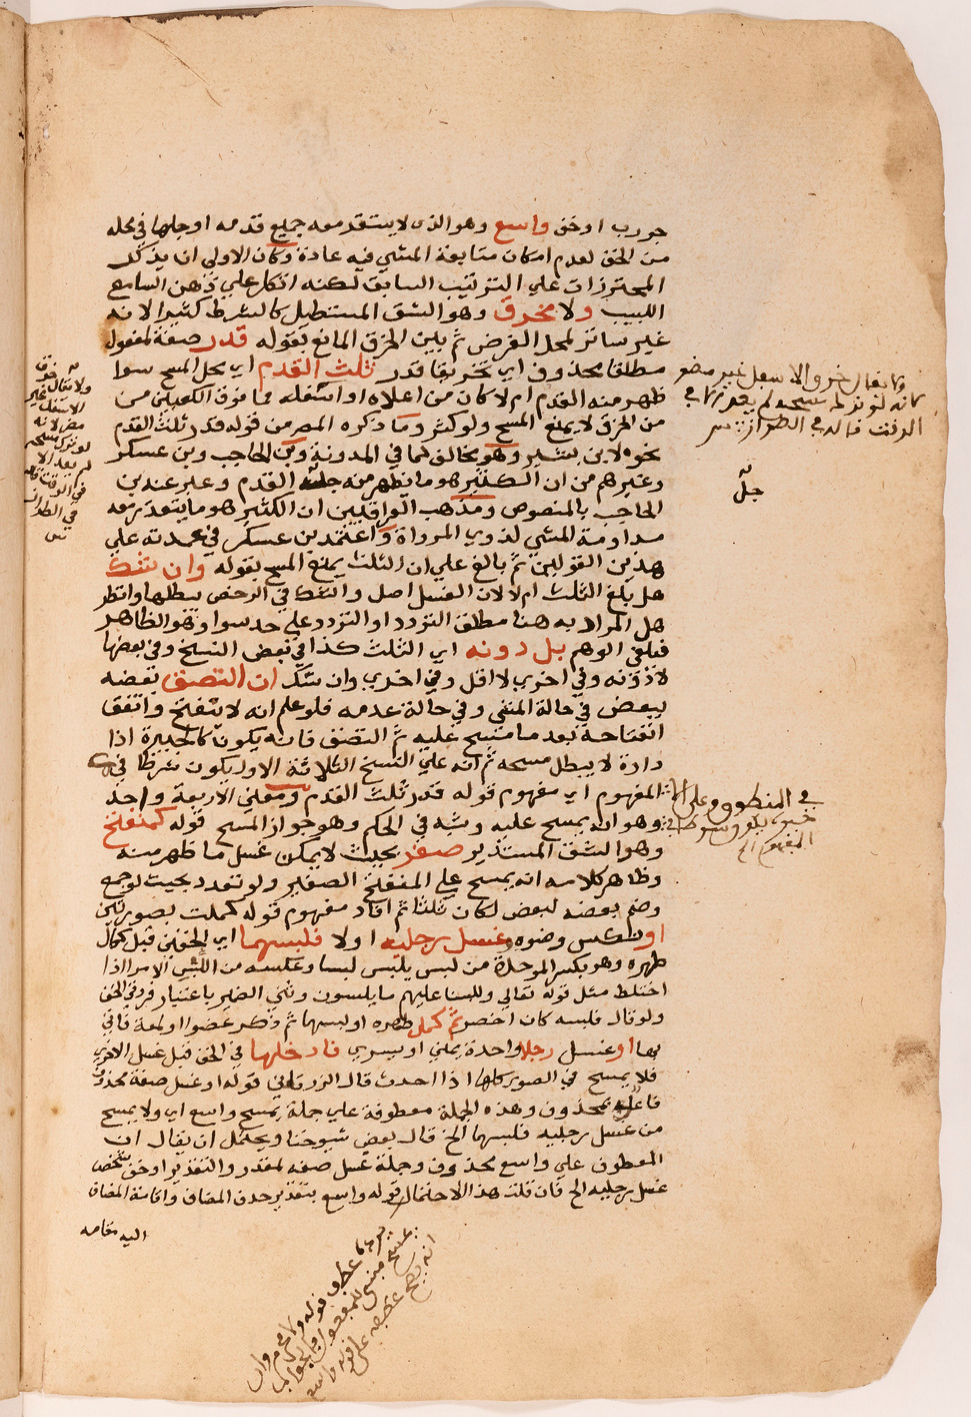 جورب او خف واسع وهو الذى لا يستقد معه جميع قدمه او جلها في محله
من الخف لعدم امكان متابعة المشي فيه عادة وكان الاولى ان يذكر
المحترزات علي الترتيب السابق لكنه اتكل علي ذهن السامع
اللبيب ولا مخرق وهو الشق المستطيل كالشرط كثيرا لانه
غير ساتر لمحل الفرض ثم بين الخرق المانع بقوله قدر صفة لمفعول
مطلقا محذوف اي تخريقا قدر ثلث القدم اي محل المسح سوا
ظهر منه القدم ام لا كان من اعلاه او اسفله مما فوق الكعبين من
من الخرق لا يمنع المسح ولو كثر وما ذكره المص من قوله قدر ثلث القدم
نحوه لابن بشير وهو مخالف لما في المدونة وبن الحاجب وبن عسكر
وغيرهم من ان الكثير هو ما يظهر منه جلة القدم وعبر عنه بن
الحاجب بالمنصوص ومذهب العراقيين ان الكثير هو ما يتعذر معه
مداومة المشي لذوي المرواة واعتمد بن عسكر في عمدته علي
هذين القولين ثم بالغ علي ان الثلث يمنع المسح بقوله وان بشك
هل بلغ الثلث ام لا لان الغسل اصل والشك في الرخص يبطلها وانظر
هل المراد به هنا مطلق التردد او التردد علي حد سوا وهو الظاهر
فيلغي الوهم بل دونه اي الثلث كذا في بعض النسخ وفي بعضها
لا دونه وفي اخري لا اقل وفي اخري وان شك ان التصق بعضه
ببعض في حالة المشي وفي حالة عدمه فلو علم انه لا ينفتح واتفق
انفتاحه بعد ما مسح عليه ثم التصق فانه يكون كالجبيرة اذا
دارة لا يبطل مسحه ثم انه علي النسخ الثلاثة الاول يكون شرطا في
المفهوم اي مفهوم قوله قدر ثلث القدم ومعني الاربعة واحد
وهو انه يمسح عليه وشبه في الحكم وهو جواز المسح قوله كمنفتح
وهو الشق المستدير صغر بحيث لا يمكن غسل ما ظهر منه
وظاهر كلامه انه يمسح علي المنفتح الصغير ولو تعدد بحيث لو جمع
وضم بعضه لبعض لكان ثلثا ثم افاد مفهوم قوله كملت بصورتين
او نكس وضوه وغسل رجليه اولا فلبسهما اي الخفين قبل كمال
طهره وهو بكسر الموحدة من لبس يلبس لبسا وعكسه من اللبس الامر اذا
اختلط مثل قوله تعالي وللبسنا عليهم ما يلبسون وثني الضمير باعتبار فردتي الخف
ولو قال فلبسه كان اخصر ثم كمل طهره او لبسها ثم ذكر عضوا او لمعة فاتي
بها او غسل رجلا واحدة يمني او يسري فادخلها في الخف قبل غسل الاخري
فلا يمسح في الصور كلها اذا احدث قال الزرقاني قوله او غسل صفة محذوف
فاعله محذوف وهذه الجملة معطوفة علي جملة يمسح واسع اي ولا يمسح
من غسل رجليه فلبسهما الخ قال بعض شيوخنا ويحتمل ان يقال ان
المعطوف علي واسع محذوف وجملة غسل صفه لمقدر والتقدير او خف شخص
غسل رجليه الخ فان قلت هذا الاحتمال قوله واسع بتقدير حذف المضاف واقامة المضاف
اليه مقامه
ولا يقال خرق
الاسفل غير
مضر لانه
لو ترك مسحه
لم يعد الا
في الوقت قاله
في الطراز
الوقت قاله في الطراز
جل
في المنطوق وعلي